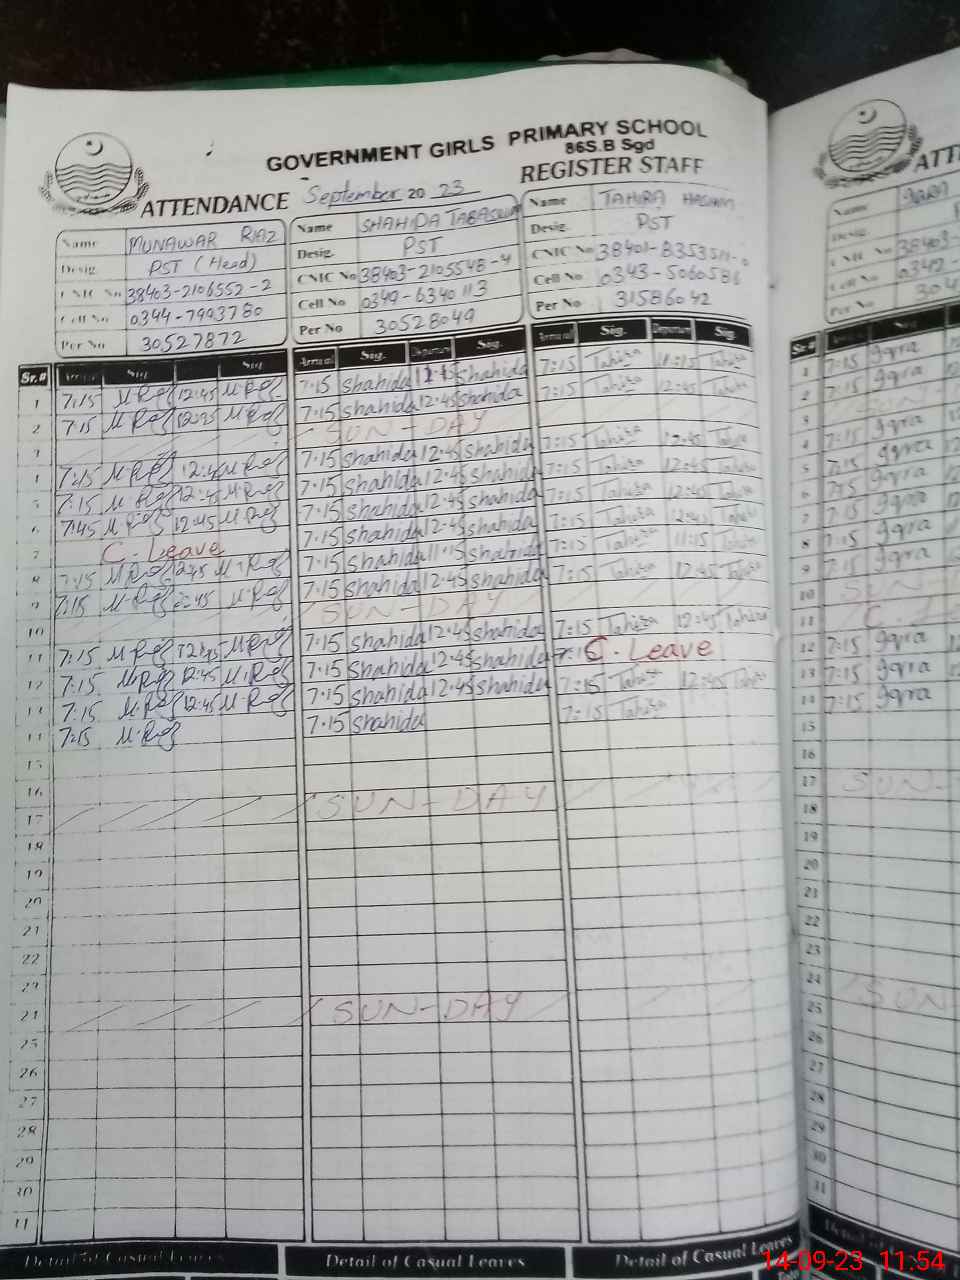 GOVERNMENT GIRLS PRIMARY SCHOOL
86S.B Sgd
ATTENDANCE September 20 23 REGISTER STAFF
Name MUNAWAR RIAZ
Desig. PST (Head)
CNIC No 38403-2106552-2
Cell No 0344-7993780
Per No 30527872
Name SHAHIDA TABASUM
Desig. PST
CNIC No 38403-2105548-4
Cell No 0349-6340113
Per No 30528049
Name TAHIRA
Desig. PST
CNIC No
Cell No 0343-5060586
Per No 31586042
Sr.# Arrival Sig. Sig. Arrival Sig. Departure Sig. Arrival Sig. Departure Sig.
1 7:15 M.Riaz 12:45 M.Riaz 7:15 Shahida Shahida 7:15 Tahira 11:15 Tahira
2 7:15 M.Riaz M.Riaz 7:15 Shahida 12:45 Shahida 7:15 Tahira 12:45 Tahira
3 SUN-DAY
4 7:15 M.Riaz 12:45 M.Riaz 7:15 Shahida 12:45 Shahida 7:15 Tahira 12:45 Tahira
5 7:15 M.Riaz 12:45 M.Riaz 7:15 Shahida 12:45 Shahida 7:15 Tahira 12:45 Tahira
6 7:45 M.Riaz 12:45 M.Riaz 7:15 Shahida 12:45 Shahida 7:15 Tahira 12:45 Tahira
7 C. Leave 7:15 Shahida 12:45 Shahida 7:15 Tahira 12:45 Tahira
8 7:15 M.Riaz 12:45 M.Riaz 7:15 Shahida 11:15 Shahida 7:15 Tahira 11:15 Tahira
9 7:15 M.Riaz M.Riaz 7:15 Shahida 12:45 Shahida 7:15 Tahira 12:45 Tahira
10 SUN-DAY
11 7:15 M.Riaz 12:45 M.Riaz 7:15 Shahida 12:45 Shahida 7:15 Tahira 12:45 Tahira
12 7:15 M.Riaz 12:45 M.Riaz 7:15 Shahida 12:45 Shahida 7:15 C. Leave
13 7:15 M.Riaz 12:45 M.Riaz 7:15 Shahida 12:45 Shahida 7:15 Tahira 12:45 Tahira
14 7:15 M.Riaz 7:15 Shahida 7:15 Tahira
15
16
17 SUN-DAY
18
19
20
21
22
23
24 SUN-DAY
25
26
27
28
29
30
31
Detail of Casual Leaves Detail of Casual Leaves Detail of Casual Leaves
ATT
Name
Desig.
CNIC No 38403-
Cell No 0342-
Per No
Sr.#
1 7:15 Iqra
2 7:15 Iqra
3 SUN
4 7:15 Iqra
5 7:15 Iqra
6 Iqra
7 7:15 Iqra
8 7:15 Iqra
9 7:15 Iqra
10 SUN
11 C.
12 7:15 Iqra
13 7:15 Iqra
14 7:15 Iqra
15
16
17 SUN-
18
19
20
21
22
23
24 SUN
25
26
27
28
29
30
31
Detail of Casual
14-09-23 11:54